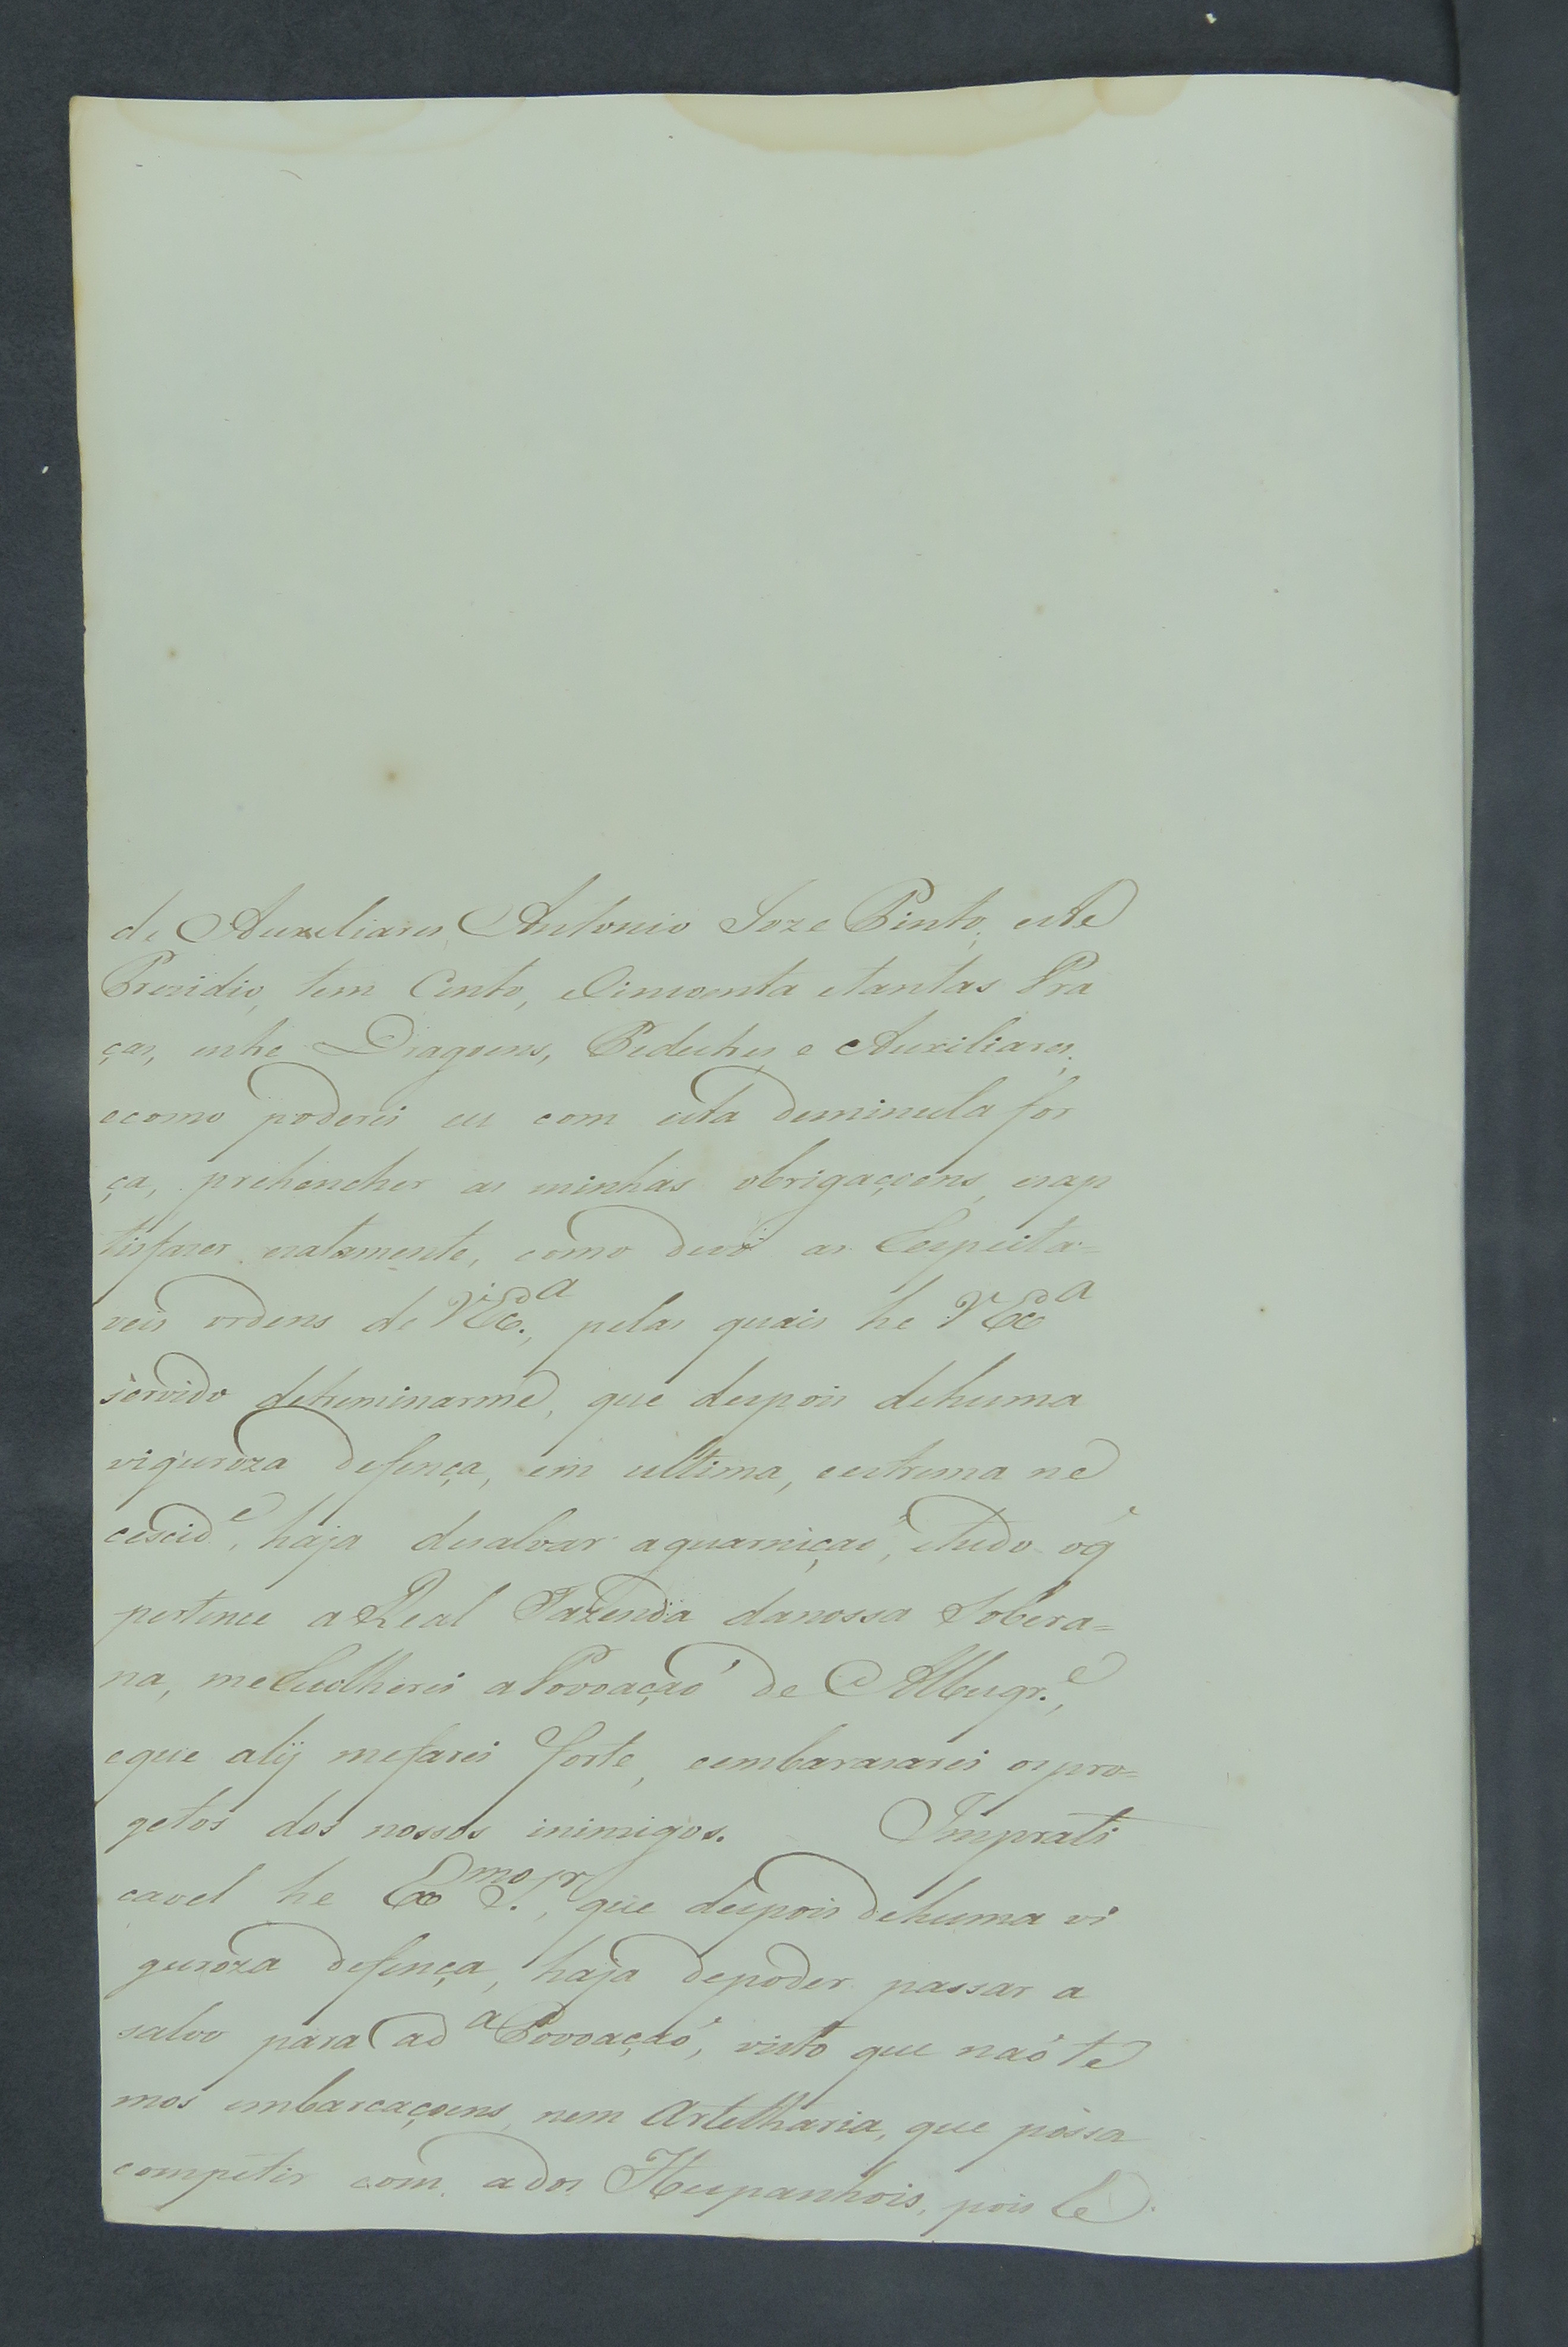 de Auxeliares Antonio Joze Pinto, este
Prezidio, tem Cento, eCincoenta etantas Pra
ças, entre Dragoens, Pedestres e Auxiliares,
ecomo poderei eu com esta deminuta for
ça, prehencher as minhas obrigaçoens, esap
tisfazer exatamente, como devo as Respeita=
veis ordens de VEx.ª, pelas quais he VExª
servido detreminarme, que depois dehuma
viguroza defença, em ultima, eextrema ne
cescid.e, haja desalvar aguarniçaõ, etudo oq̃
pertence aReal Fazenda danossa Sobera=
na, meRecolherei aPovoaçaõ de Albuqr.e,
eque alij mefarei forte, eembarasarei ospro=
getos dos nossos inimigos. Imprati
cavel he Exmo Sr., que depois dehuma vi
guroza defença, haja depoder passar a
salvo para adª Povoaçaõ, visto que naõ te
mos embarcaçoens, nem Artelharia, que possa
competir com ados Hespanhois, pois se